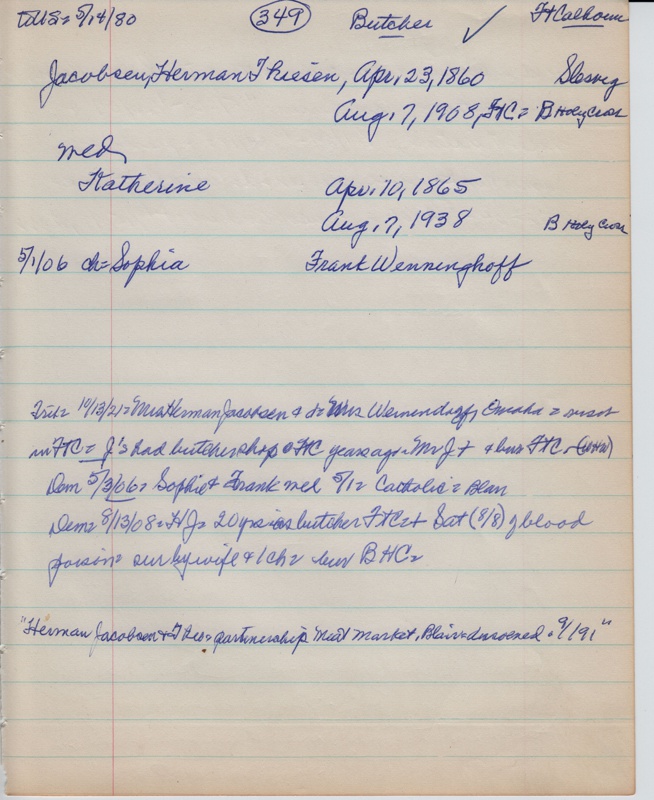 5/14/80 349 Butcher ✓ Ft Calhoun
Jacobsen, Herman Thiesen, Apr. 23, 1860 Slesvig
Aug. 7, 1908, FtC = B Holy Cross
med
Katherine Apr. 10, 1865
Aug. 7, 1938 B Holy Cross
5/1/06 ch = Sophia Frank Wenninghoff
10/13/21 = Mrs Herman Jacobsen & d = Mrs Omaha = visit
in FtC = J's had butcher shop FtC years ago = Mr J + & bur FtC
Dem 5/3/06 = Sophie & Frank med 5/1 = Catholic = Blair
Dem = 8/13/08 = HJ = 20 yrs as butcher FtC = + Sat (8/8) of blood
poison = sur by wife & 1 ch = bur BHC =
"Herman Jacobsen & Theo = partnership Meat Market, Blair = 9/191"